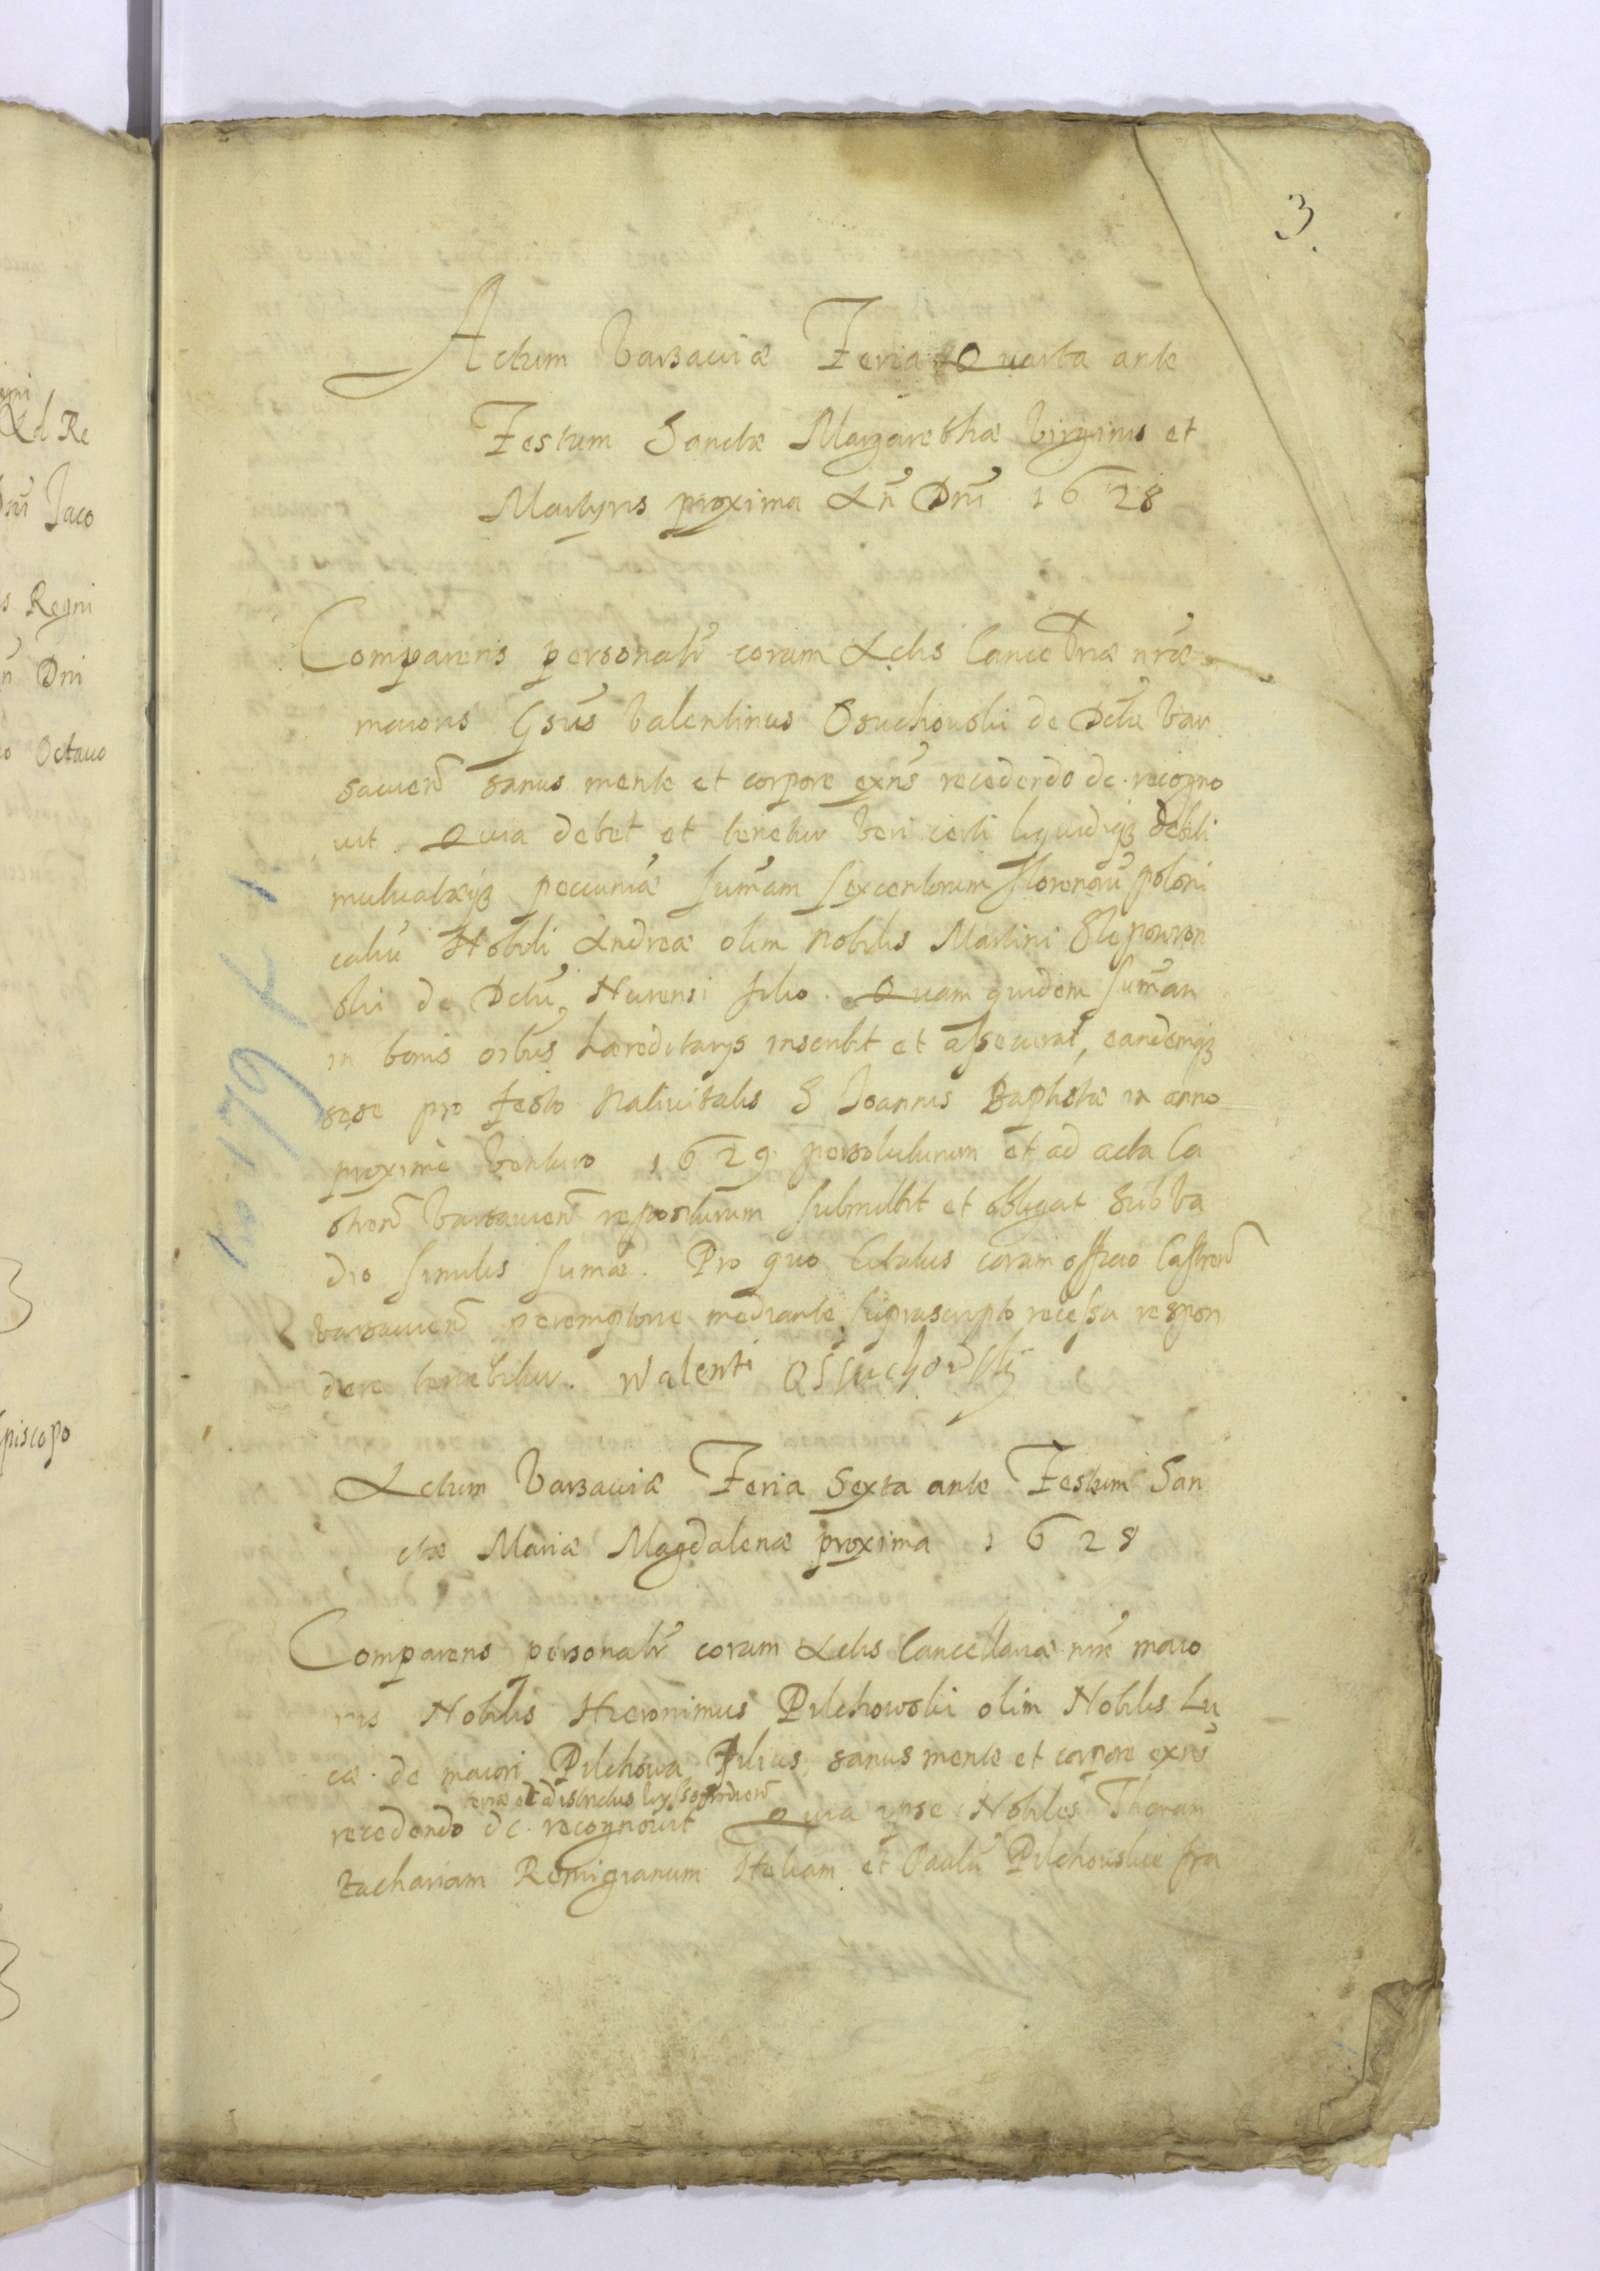 3.
Actum Varsaviæ Feria Quarta ante
Festum Sanctæ Margarethæ Virginis et
Martyris proxima An̄ Dn̄i 1628
Comparens personalr̄ coram Actis Cancellariæ nr̄æ
maioris Gn̄sus Valentinus Osuchowski de Dctu Var
savien̄ sanus mente et corpore exn̄s recedendo dc. recogno
vit Quia debet et tenetur veri certi liquidiq3 debiti
mutuatæq3 pecuniæ sum̄am sexcentorum florenorū poloni
caliū Nobili Andreæ olim Nobilis Martini Slepowron
ski de Dctū Nurensi filio. Quam quidem sum̄am
in bonis oībus hæreditarys inscribit et assecurat, eandemq3
sese pro festo Nativitatis S Joannis Baptistæ in anno
proximè venturo 1629 persoluturum et ad acta Ca
stren̄ Varsavien̄ repositurum submittit et obligat sub va
dio similis sum̄æ. Pro quo Citatus coram officio Castren̄
Varsavien̄ peremptorie mediante suprascripto recessu respon
dere tenebitur. Walenti Ossuchowski
Actum Varsaviæ Feria Sexta ante Festum San
ctæ Mariæ Magdalenæ proxima 1628
Comparens personalr̄ coram Actis Cancellariæ nr̄æ maio
ris Nobilis Hieronimus Pilchowski olim Nobilis Lu
cæ de maiori Pilchowa Filius, sanus mente et corpore exn̄s
terræ et districtus
recedendo dc. recognovit Quia ipse Nobiles Thomam
Zachariam Remigianum Heliam et Paulū Pilchowskie fra
No 179 k 1
Ad Re
Jaco
s Regni
n̄ Dni
o Octavo
piscopo